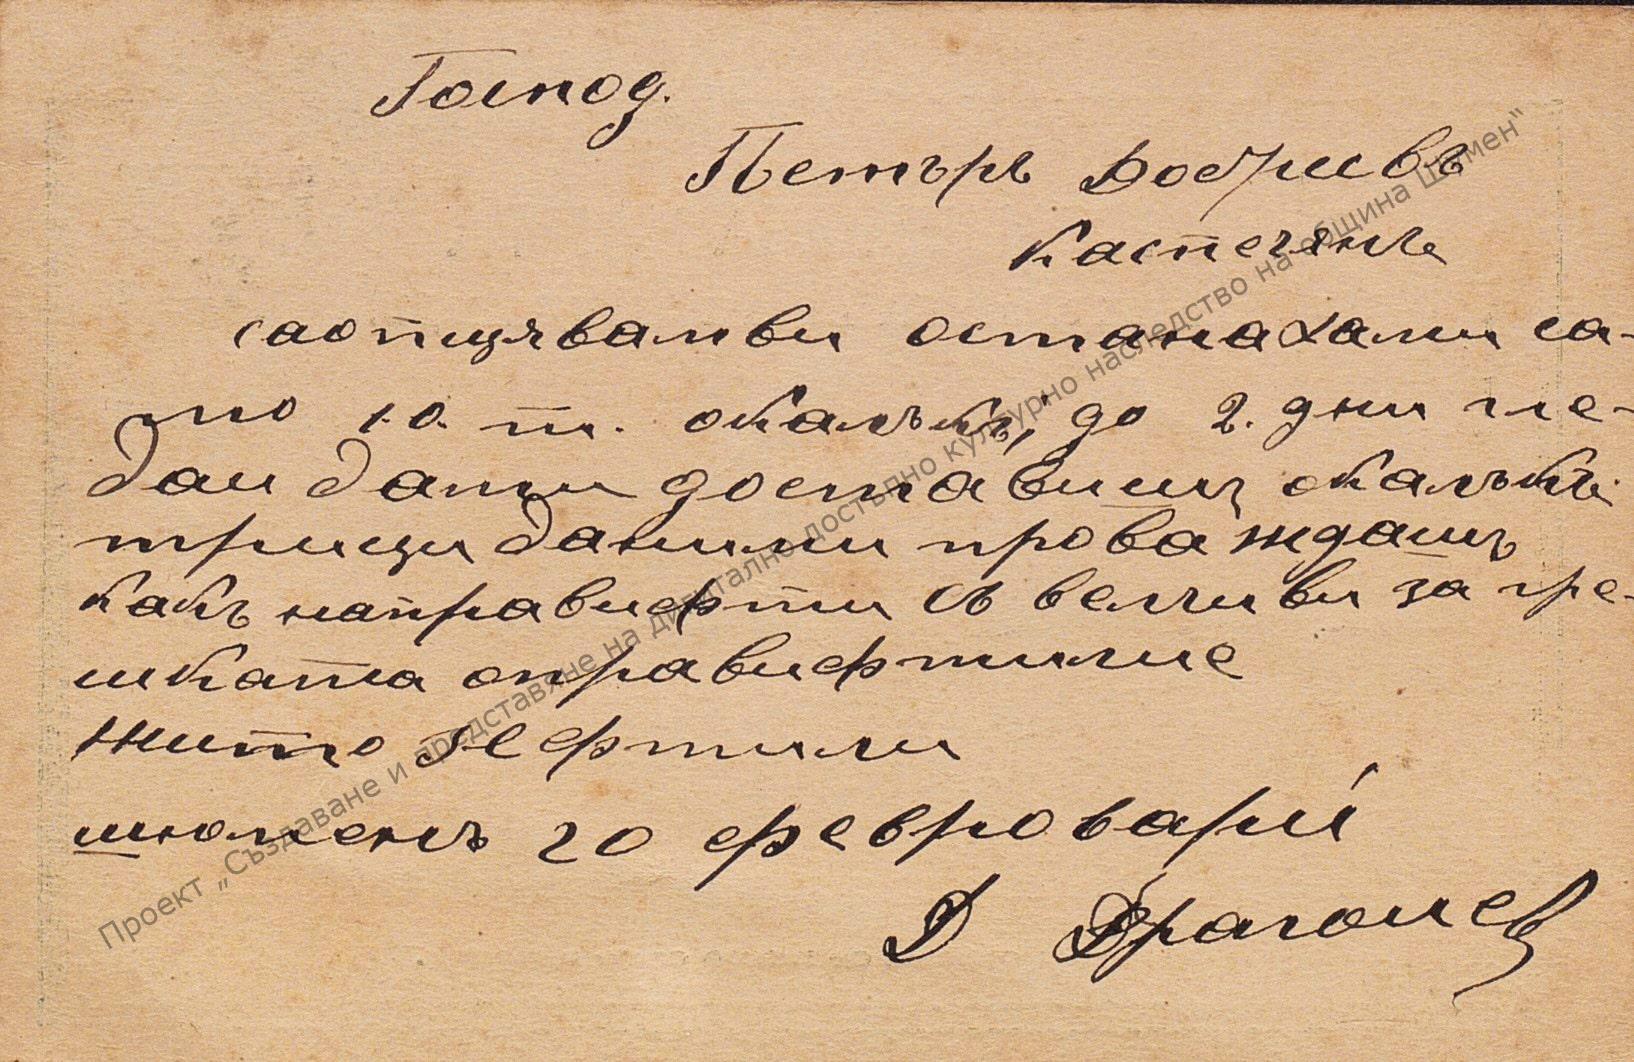 Господ.
Петъръ Добриевъ
Каспичянъ
саопщявамви останахами са-
мо 10. т. окалъкъ, до 2. дни гле-
даи дами доставишъ окалъкъ
трици даними проваждашъ
какъ направифти съ великиви за гре-
шката оправифтилие
житО Нефтили
шюменъ 20 февровари
Д Драгошев
Проект „Създаване и представяне на дигитално достъпно културно наследство на община Шумен"